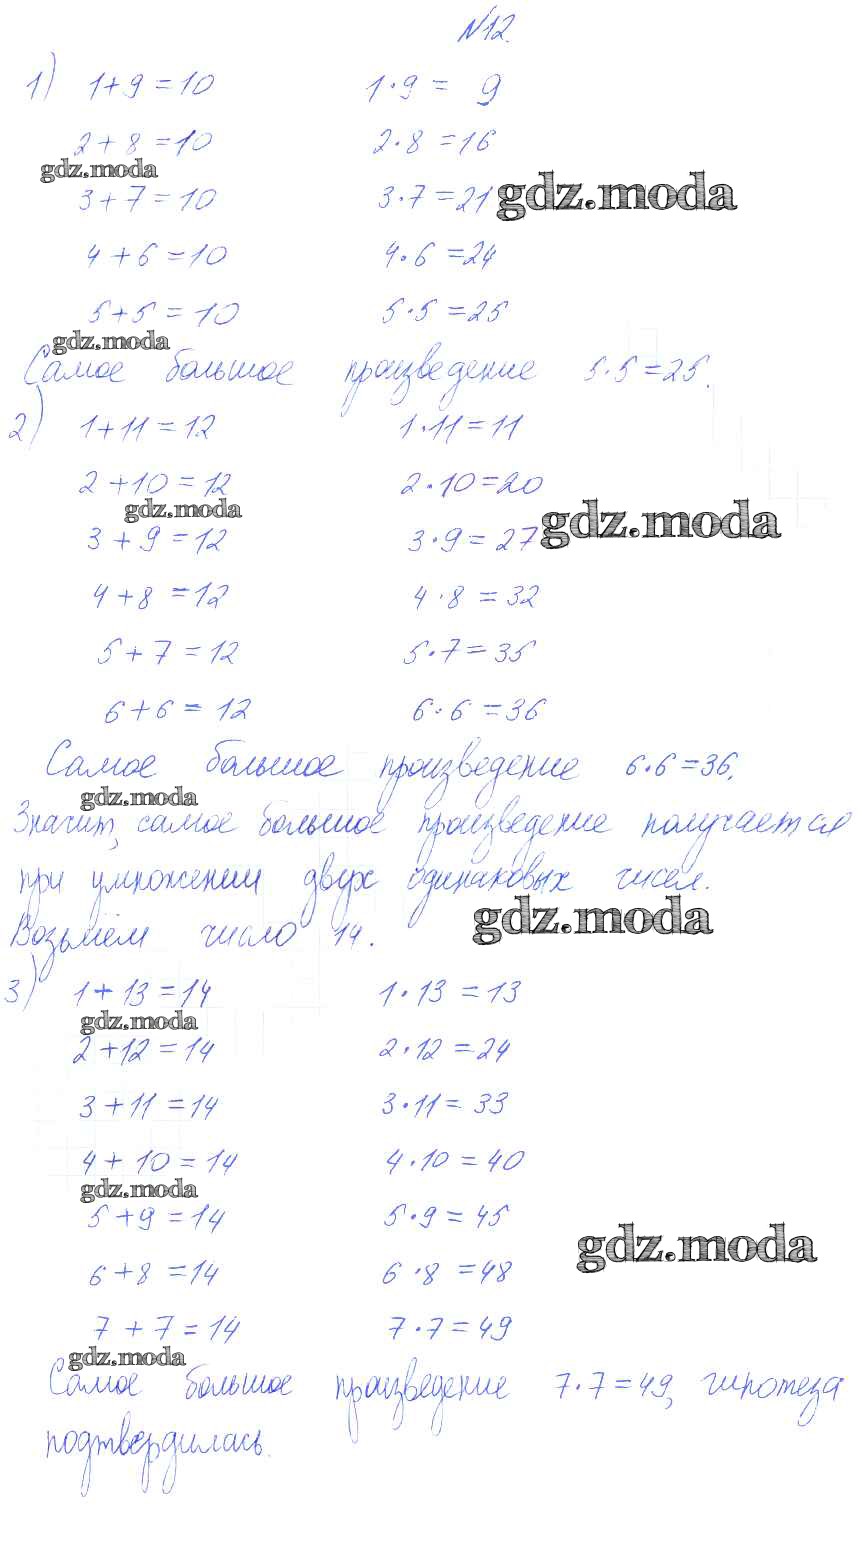 №12.
1) 1+9=10 1·9= 9
2+8=10 2·8=16
gdz.moda
3+7=10 3·7=21 gdz.moda
4+6=10 4·6=24
5+5=10 5·5=25
gdz.moda
Самое большое произведение 5·5=25.
2) 1+11=12 1·11=11
2+10=12 2·10=20
gdz.moda gdz.moda
3+9=12 3·9=27
4+8=12 4·8=32
5+7=12 5·7=35
6+6=12 6·6=36
Самое большое произведение 6·6=36.
gdz.moda
Значит, самое большое произведение получается
при умножении двух одинаковых чисел.
gdz.moda
Возьмём число 14.
3) 1+13=14 1·13=13
gdz.moda
2+12=14 2·12=24
3+11=14 3·11=33
4+10=14 4·10=40
gdz.moda
5+9=14 5·9=45
gdz.moda
6+8=14 6·8=48
7+7=14 7·7=49
gdz.moda
Самое большое произведение 7·7=49, гипотеза
подтвердилась.